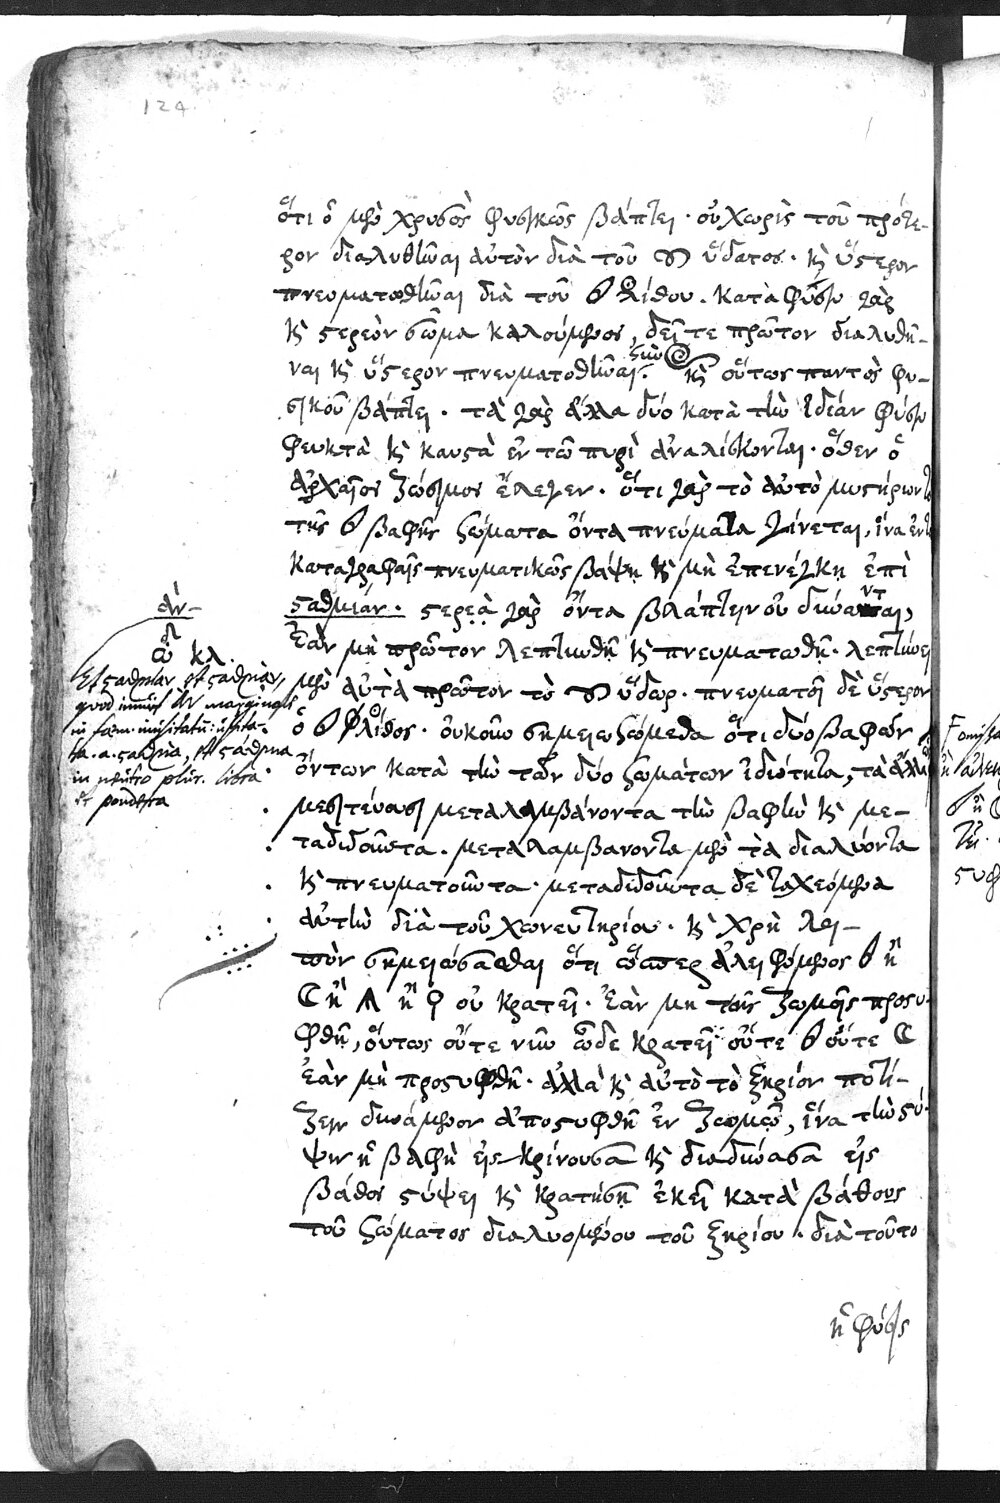 124
ὅτι ὁ μὲν χρυσὸς φυσικῶς βάπτει· οὐ χωρὶς τοῦ πρότε-
ρον διαλυθῆναι αὐτὸν διὰ τοῦ ὕδατος. καὶ ὕστερον
πνευματωθῆναι διὰ τοῦ λίθου. κατὰ φύσιν γὰρ
καὶ στερεὸν σῶμα καλούμενος, δεῖ τε πρῶτον διαλυθῆ-
ναι καὶ ὕστερον πνευματοθῆναι. καὶ οὕτως παντὸς φυ-
σικοῦ βάπτει. τὰ γὰρ ἄλλα δύο κατὰ τὴν ἰδίαν φύσιν
φευκτὰ καὶ καυστὰ ἐν τῶ πυρὶ ἀναλίσκονται. ὅθεν ὁ
ἀρχαῖος Ζώσιμος ἔλεγεν. ὅτι γὰρ τὸ αὐτὸ μυστήριον
τῆς βαφῆς σώματα ὄντα πνεύματα γίνεται, ἵνα ἐν
καταγραφαῖς πνευματικῶς βάψῃ καὶ μὴ ἐπενέγκῃ ἐπὶ
σταθμιάν. στερεὰ γὰρ ὄντα βλάπτειν οὐ δύνανται,
Ἐὰν μὴ πρῶτον λεπτυνθῆ καὶ πνευματωθῆ. λεπτύνει
μὲν αὐτὰ πρῶτον τὸ ὕδωρ. πνευματοῖ δὲ ὕστερον
ὁ λίθος. οὐκοῦν σημειωσώμεθα ὅτι δύο βαφῶν
ὄντων κατὰ τὴν τῶν δύο σωμάτων ἰδιότητα, τὰ ἄλλα
μεσιτεύουσι μεταλαμβάνοντα τὴν βαφὴν καὶ με-
ταδιδοῦντα. μεταλαμβάνοντα μὲν τὰ διαλύοντα
καὶ πνευματοῦντα. μεταδιδοῦντα δὲ τὰ χεόμενα
αὐτὴν διὰ τοῦ χωνευτηρίου. καὶ χρὴ λοι-
πὸν σημειώσασθαι ὅτι ὥσπερ ἀλειφόμενος ἢ
ἢ ἢ οὐ κρατεῖ. Ἐὰν μη τοῖς ζωμοῖς προστυ-
φθῆ, οὕτως οὔτε νῦν ὧδε κρατεῖ οὔτε οὔτε
ἐὰν μὴ προστυφθῆ. ἀλλὰ καὶ αὐτὸ τὸ ξηρίον ποτί-
ζειν δυνάμενον ἀποστυφθῆ ἐν ζωμῶ, ἵνα τὴν στύ-
ψιν ἡ βαφὴ εἰσκρίνουσα καὶ διαδύνασα εἰς
βάθος στύψει καὶ κρατήσῃ ἐκεῖ κατὰ βάθους
τοῦ σώματος διαλυομένου τοῦ ξηρίου. διὰ τοῦτο
ἡ φύσις
Et σταθμίαν, et σταθμὰν,
in plurio plur. libra
et pondera